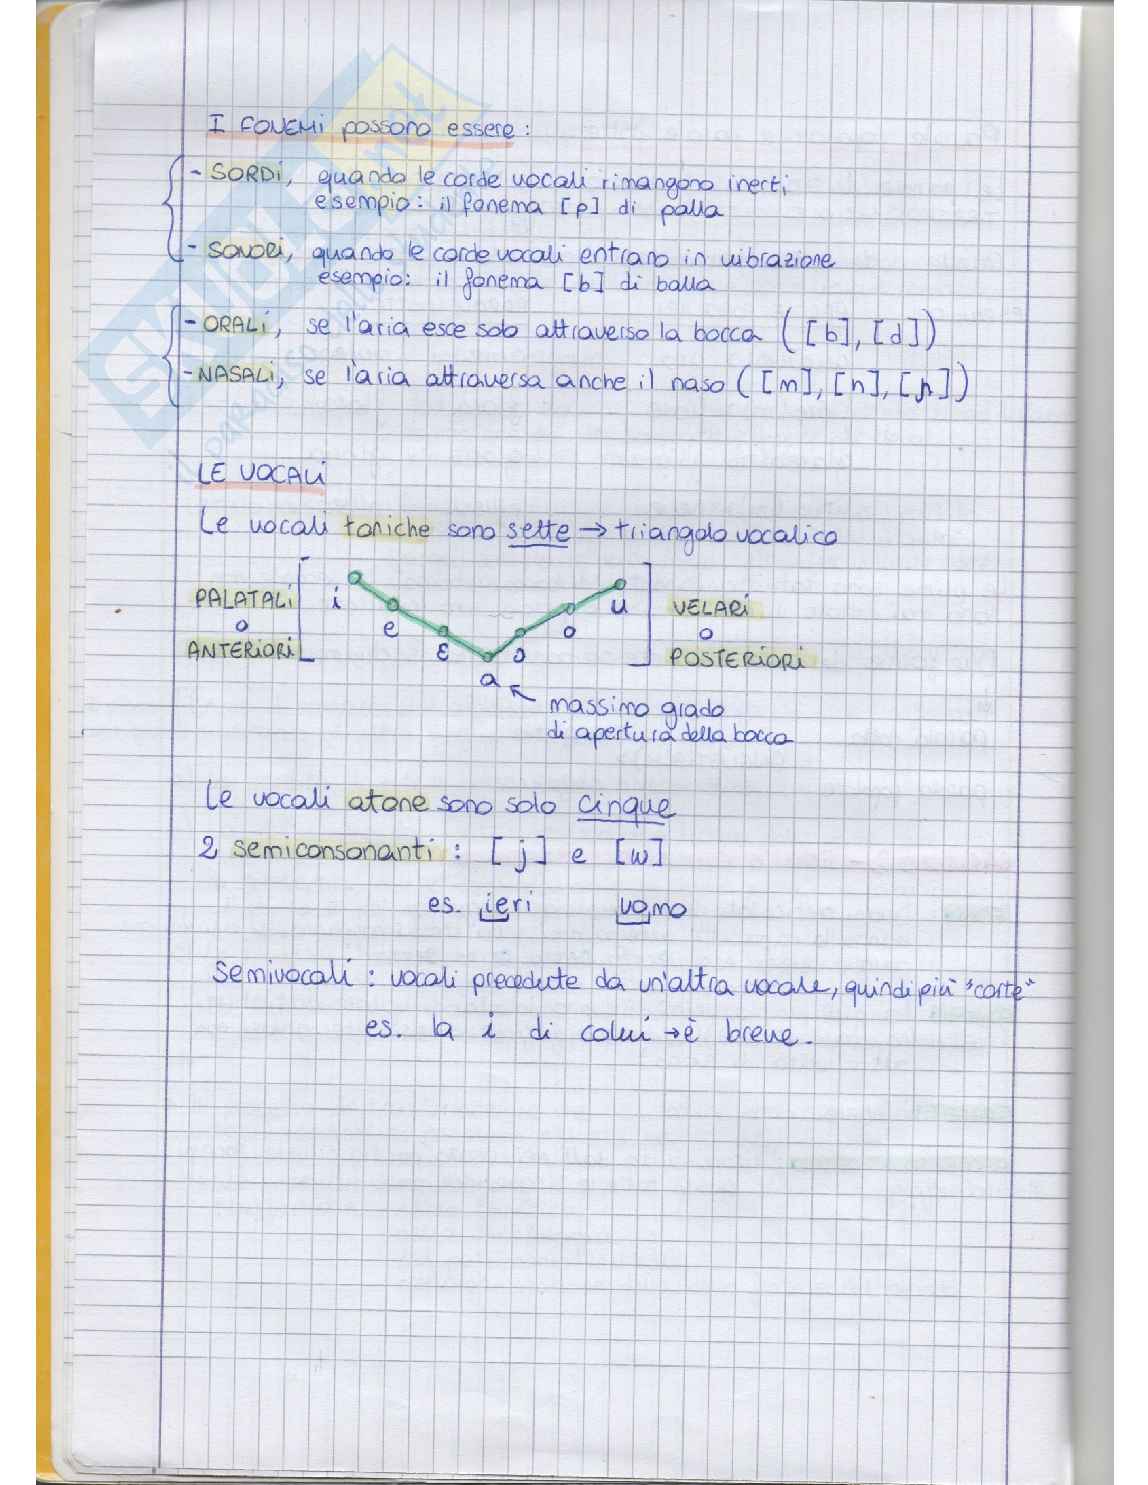 I FONEMI possono essere:
- SORDI, quando le corde vocali rimangono inerti
esempio: il fonema [p] di palla
- SONORI, quando le corde vocali entrano in vibrazione
esempio: il fonema [b] di balla
- ORALI, se l'aria esce solo attraverso la bocca ([b], [d])
- NASALI, se l'aria attraversa anche il naso ([m], [n], [ɲ])
LE VOCALI
Le vocali toniche sono sette → triangolo vocalico
PALATALI
o
ANTERIORI
i
e
ɛ
a
ɔ
o
u
VELARI
o
POSTERIORI
massimo grado
di apertura della bocca
Le vocali atone sono solo cinque
2 semiconsonanti: [j] e [w]
es. ieri uomo
Semivocali: vocali precedute da un'altra vocale, quindi più "corte"
es. la i di colui → è breve.